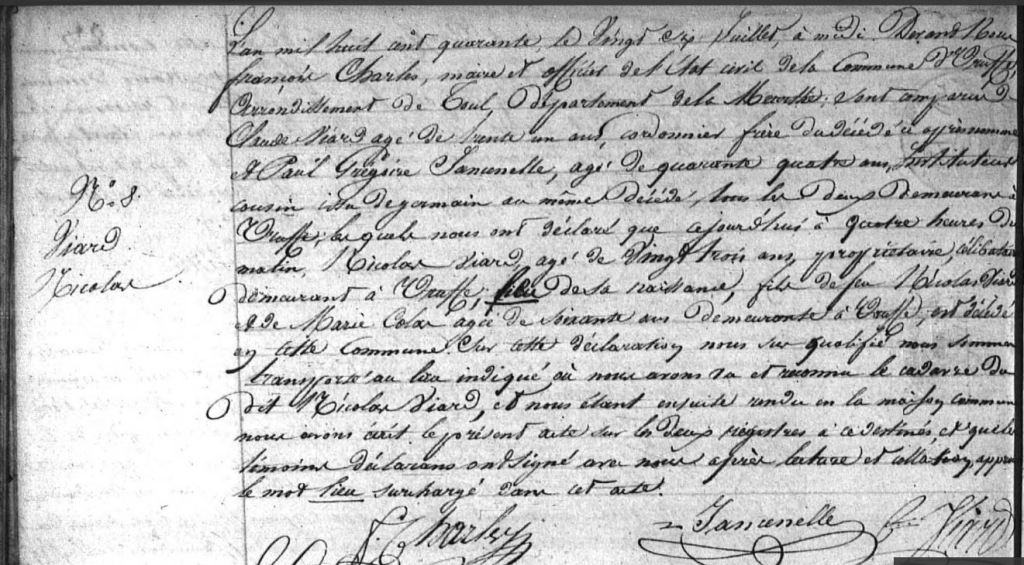 L'an mil huit cent quarante, le vingt six Juillet, à midi Devant Nous
françois Charles, maire et officier de l'Etat civil de la Commune d'Uruffe,
Arrondissement de Toul, Département de la Meurthe; sont comparus
Claude Viard agé de trente un ans, cordonnier frère du décédé ci après nommé
et Paul Grégoire Jancenelle, agé de quarante quatre ans, Instituteur
cousin issu de germain au même décédé, tous les deux demeurans à
Uruffe; lesquels nous ont déclaré que cejourd'hui à quatre heures du
N.° 8.
Viard
Nicolas
matin, Nicolas Viard, agé de vingt trois ans, propriétaire, célibataire
demeurant à Uruffe, lieu de sa naissance, fils de feu Nicolas Viard
et de Marie Colas agée de soixante ans demeurante à Uruffe, est décédé
en cette Commune. Sur cette déclaration nous sus qualifié nous sommes
transporté au lieu indiqué où nous avons vu et reconnu le cadavre du
dit Nicolas Viard, et nous étant ensuite rendu en la maison commune
nous avons écrit le présent acte sur les deux registres à ce destinés, et que les
témoins déclarans ont signé avec nous après lecture et collation, approuvé
le mot lieu surchargé dans cet acte.
f. Charles Jancenelle Viard